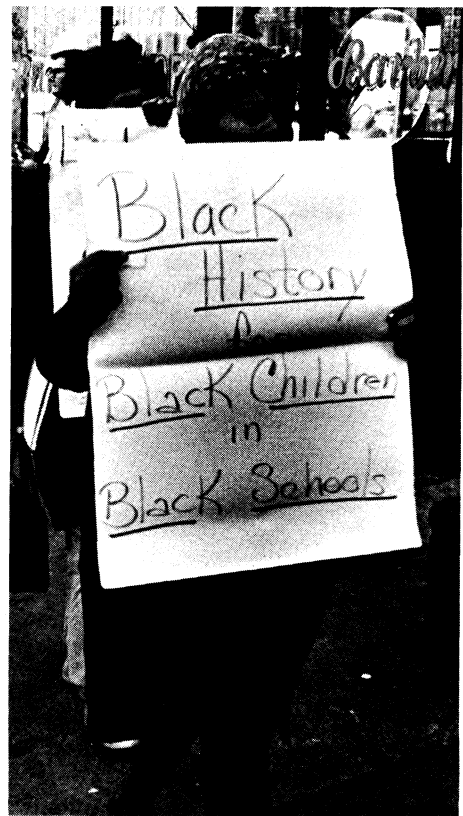 Barber
Black
History
for
Black Children
in
Black Schools